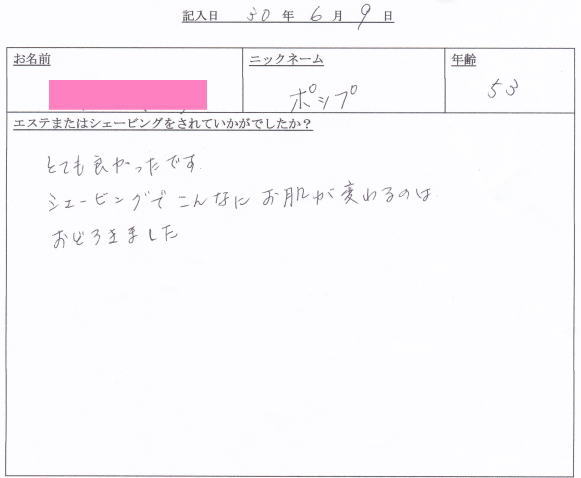 記入日 30 年 6 月 9 日
お名前 ニックネーム 年齢
ポシプ 53
エステまたはシェービングをされていかがでしたか？
とても良かったです.
シェービングでこんなにお肌が変わるのは
おどろきました